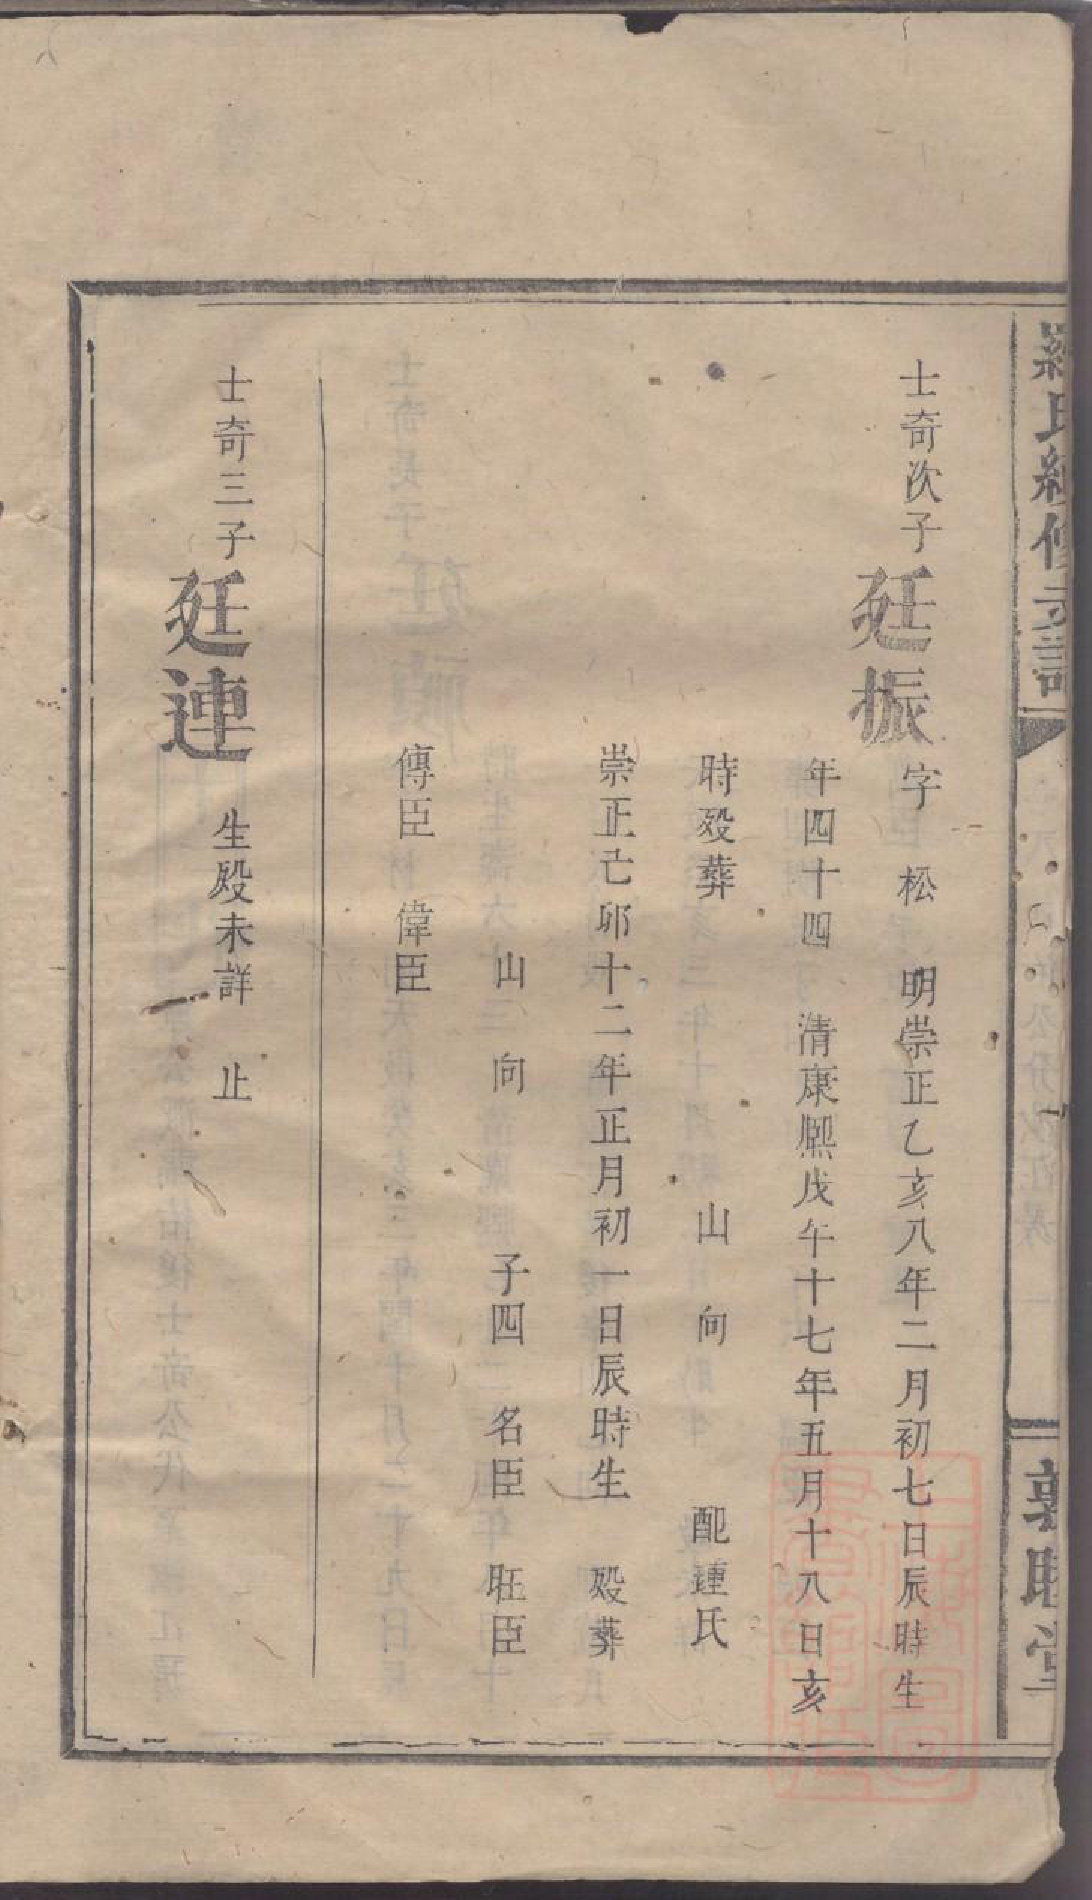 羅氏續修支譜
敦睦堂
士奇次子廷振字松明崇正乙亥八年二月初七日辰時生
年四十四清康熙戊午十七年五月十八日亥
時殁葬山向配鍾氏
崇正己卯十二年正月初一日辰時生殁葬
山向子四名臣旺臣
傳臣偉臣
士奇三子廷連生殁未詳止